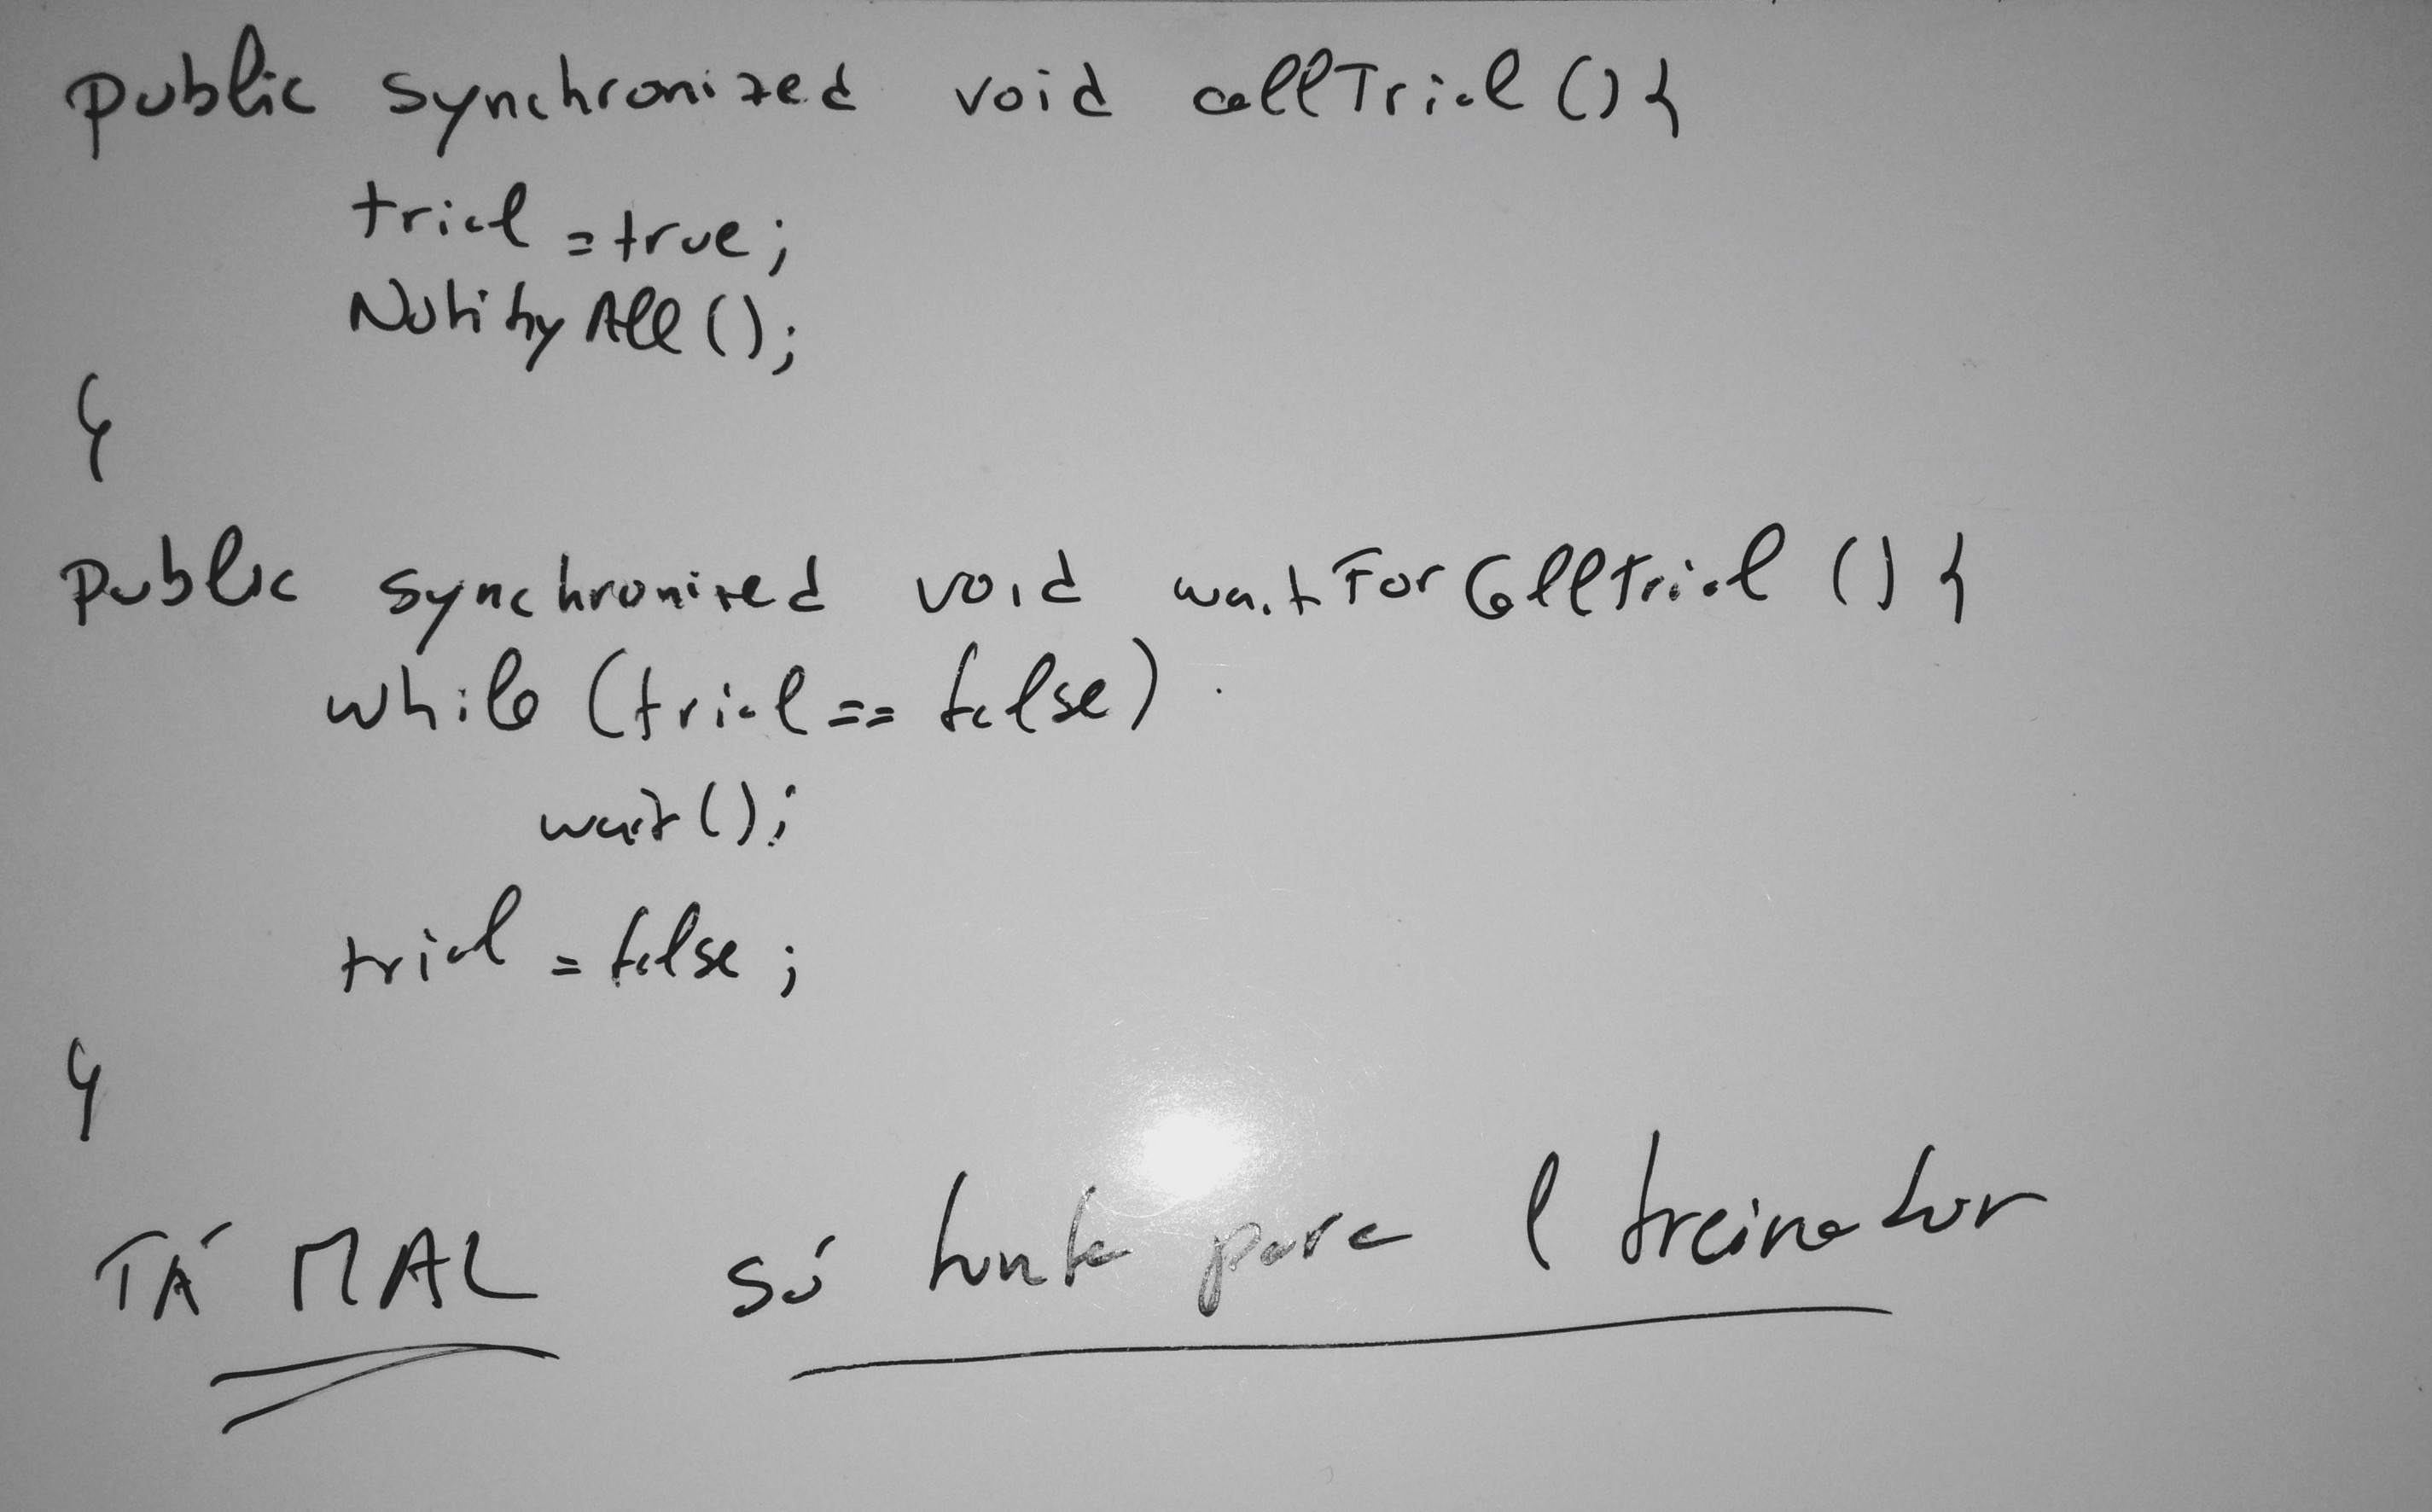 public synchronized void callTrial () {
trial = true;
NotifyAll ();
}
public synchronized void waitForCallTrial () {
while (trial == false)
wait ();
trial = false;
}
TÁ MAL só para 1 treinador